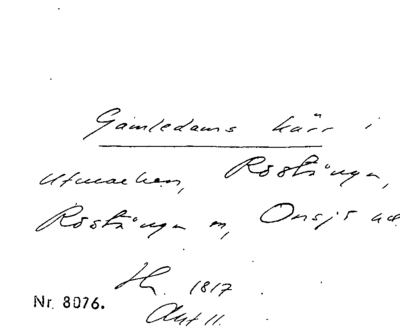 Gamledams kärr i
utmarken, Röstånga,
Röstånga sn, Onsjö hd.
1817
Akt 11.
Nr. 8076.